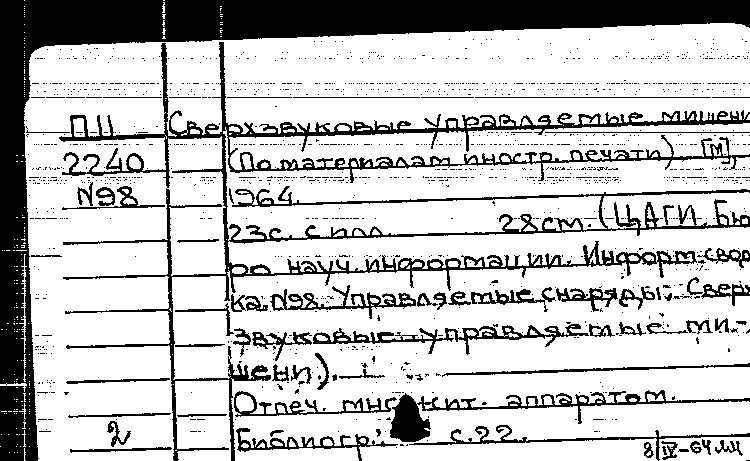 П11 Сверхзвуковые управляемые мишени
2240 (По материалам иностр. печати). [М],
N98 1964.
23с. с илл. 28см. (ЦАГИ. Бю-
ро науч. информации. Информ. свод-
ка. N98. Управляемые снаряды. Сверх-
звуковые управляемые ми-
шени).
Отпеч. множит. аппаратом.
2 Библиогр.: с.22.
8/IV-64